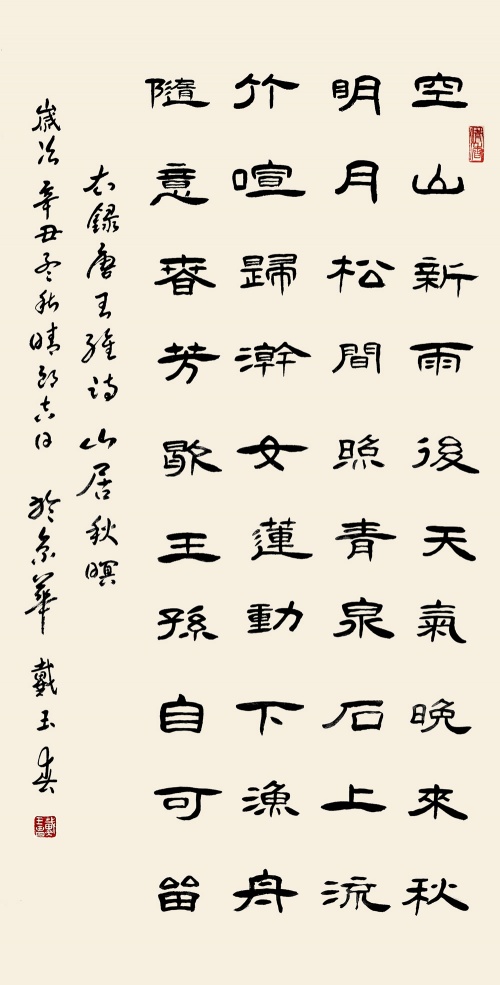 空山新雨後天氣晚來秋
明月松間照青泉石上流
竹喧歸澣女蓮動下漁舟
隨意春芳歇王孫自可留
右錄唐王維詩山居秋暝
歲次辛丑秋晴朗吉日於京華戴玉春